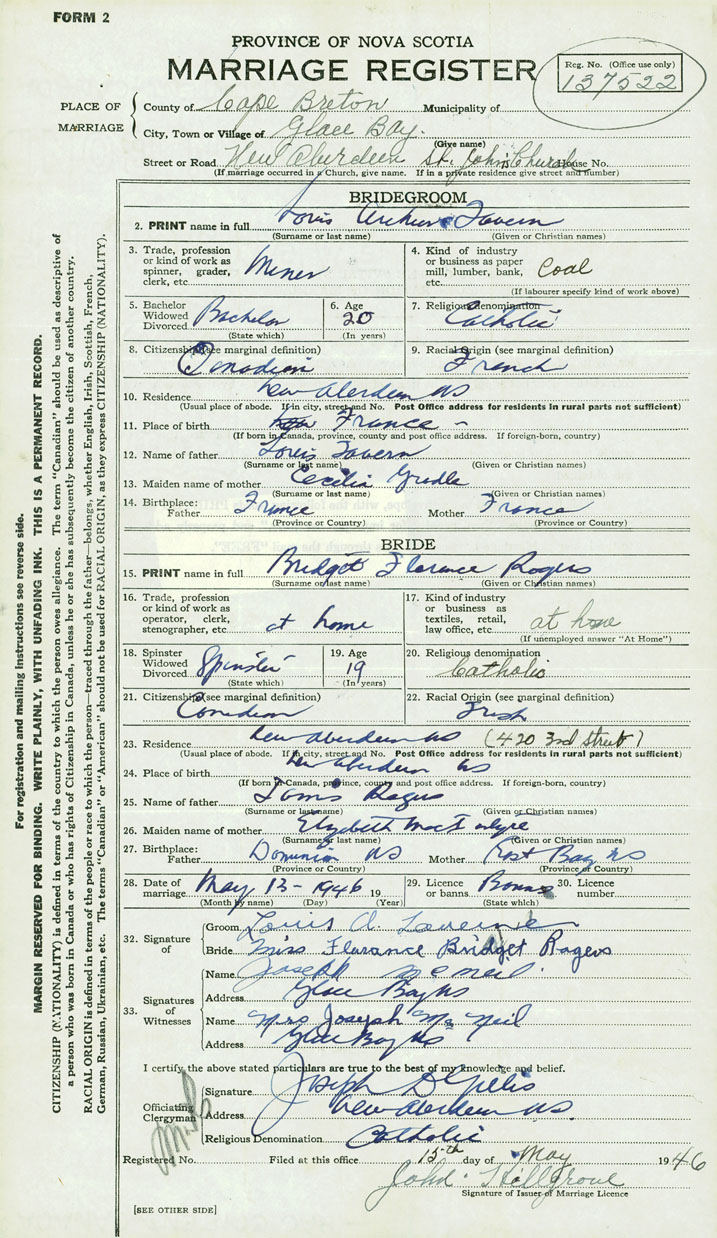 FORM 2
PROVINCE OF NOVA SCOTIA
MARRIAGE REGISTER
Reg. No. (Office use only)
137522
PLACE OF MARRIAGE
County of Cape Breton Municipality of
City, Town or Village of Glace Bay.
(Give name)
Street or Road New Aberdeen St. John Church House No.
(If marriage occurred in a Church, give name. If in a private residence give street and number)
BRIDEGROOM
2. PRINT name in full Louis Arthur Tavern
(Surname or last name) (Given or Christian names)
3. Trade, profession or kind of work as spinner, grader, clerk, etc. Miner
4. Kind of industry or business as paper mill, lumber, bank, etc. Coal
(If labourer specify kind of work above)
5. Bachelor Widowed Divorced Bachelor
(State which)
6. Age 20
(In years)
7. Religious denomination Catholic
8. Citizenship (see marginal definition)
Canadian
9. Racial Origin (see marginal definition)
French
10. Residence New Aberdeen NS
(Usual place of abode. If in city, street and No. Post Office address for residents in rural parts not sufficient)
11. Place of birth France
(If born in Canada, province, county and post office address. If foreign-born, country)
12. Name of father Louis Tavern
(Surname or last name) (Given or Christian names)
13. Maiden name of mother Cecilia
(Surname or last name) (Given or Christian names)
14. Birthplace: Father France Mother France
(Province or Country) (Province or Country)
BRIDE
15. PRINT name in full Bridget Florence Rogers
(Surname or last name) (Given or Christian names)
16. Trade, profession or kind of work as operator, clerk, stenographer, etc. at home
17. Kind of industry or business as textiles, retail, law office, etc. at home
(If unemployed answer "At Home")
18. Spinster Widowed Divorced Spinster
(State which)
19. Age 19
(In years)
20. Religious denomination
Catholic
21. Citizenship (see marginal definition)
Canadian
22. Racial Origin (see marginal definition)
Irish
23. Residence New Aberdeen NS (420 3rd Street)
(Usual place of abode. If in city, street and No. Post Office address for residents in rural parts not sufficient)
24. Place of birth New Aberdeen NS
(If born in Canada, province, county and post office address. If foreign-born, country)
25. Name of father Rogers
(Surname or last name) (Given or Christian names)
26. Maiden name of mother Elizabeth
(Surname or last name) (Given or Christian names)
27. Birthplace: Father Dominion NS Mother East Bay NS
(Province or Country) (Province or Country)
28. Date of marriage May 13 - 1946 19
(Month by name) (Day) (Year)
29. Licence or banns Banns
(State which)
30. Licence number
32. Signature of
Groom Louis A.
Bride Miss Florance Bridget Rogers
33. Signatures of Witnesses
Name Joseph McNeil.
Address Glace Bay NS
Name Mrs Joseph McNeil
Address Glace Bay NS
I certify the above stated particulars are true to the best of my knowledge and belief.
Officiating Clergyman
Signature Joseph D Gillis
Address New Aberdeen NS.
Religious Denomination Catholic
Registered No. Filed at this office 15th day of May 1946
John Hillgrove
Signature of Issuer of Marriage Licence
[SEE OTHER SIDE]
For registration and mailing instructions see reverse side.
MARGIN RESERVED FOR BINDING. WRITE PLAINLY, WITH UNFADING INK. THIS IS A PERMANENT RECORD.
CITIZENSHIP (NATIONALITY) is defined in terms of the country to which the person owes allegiance. The term "Canadian" should be used as descriptive of
a person who was born in Canada or who has rights of Citizenship in Canada, unless he or she has subsequently become the citizen of another country.
RACIAL ORIGIN is defined in terms of the people or race to which the person—traced through the father—belongs, whether English, Irish, Scottish, French,
German, Russian, Ukrainian, etc. The terms "Canadian" or "American" should not be used for RACIAL ORIGIN, as they express CITIZENSHIP (NATIONALITY).